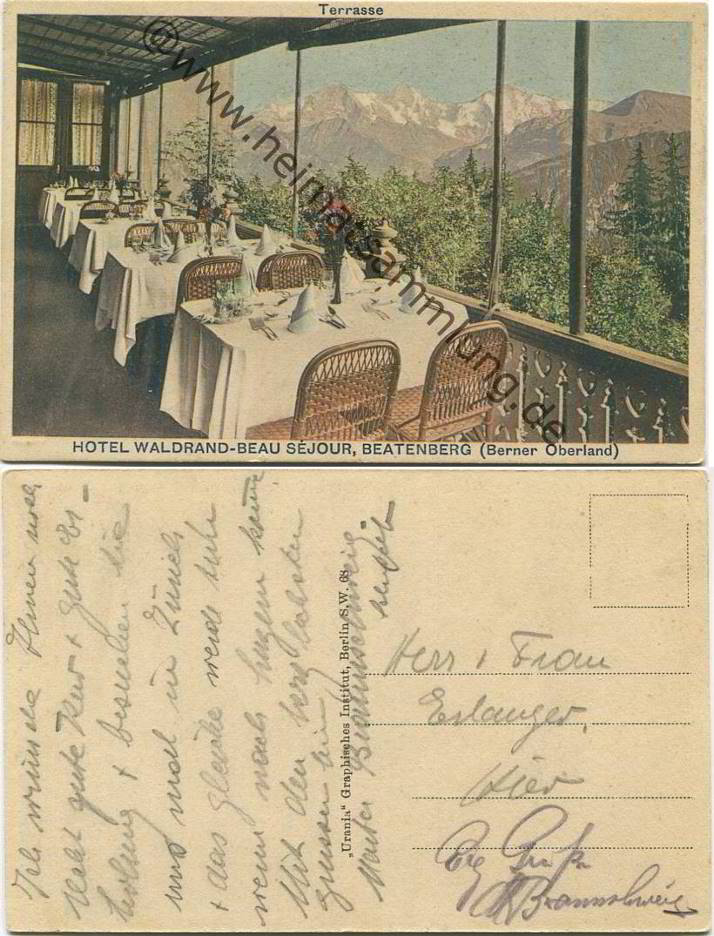 Terrasse
@www.heimatsammlung.de
HOTEL WALDRAND-BEAU SÉJOUR, BEATENBERG (Berner Oberland)
Ich wünsche Ihnen noch
recht gute Kur + gute Er-
holung + besuchen Sie
uns mal in Zürich
+ das gleiche werde tuhn
wenn nach Hagen komme
Mit den herzlichsten
grüssen bin
Braunschweig.
„Urania" Graphisches Institut, Berlin S.W. 68
Herr + Frau
Erlanger,
Hier
Grüße
Braunschweig